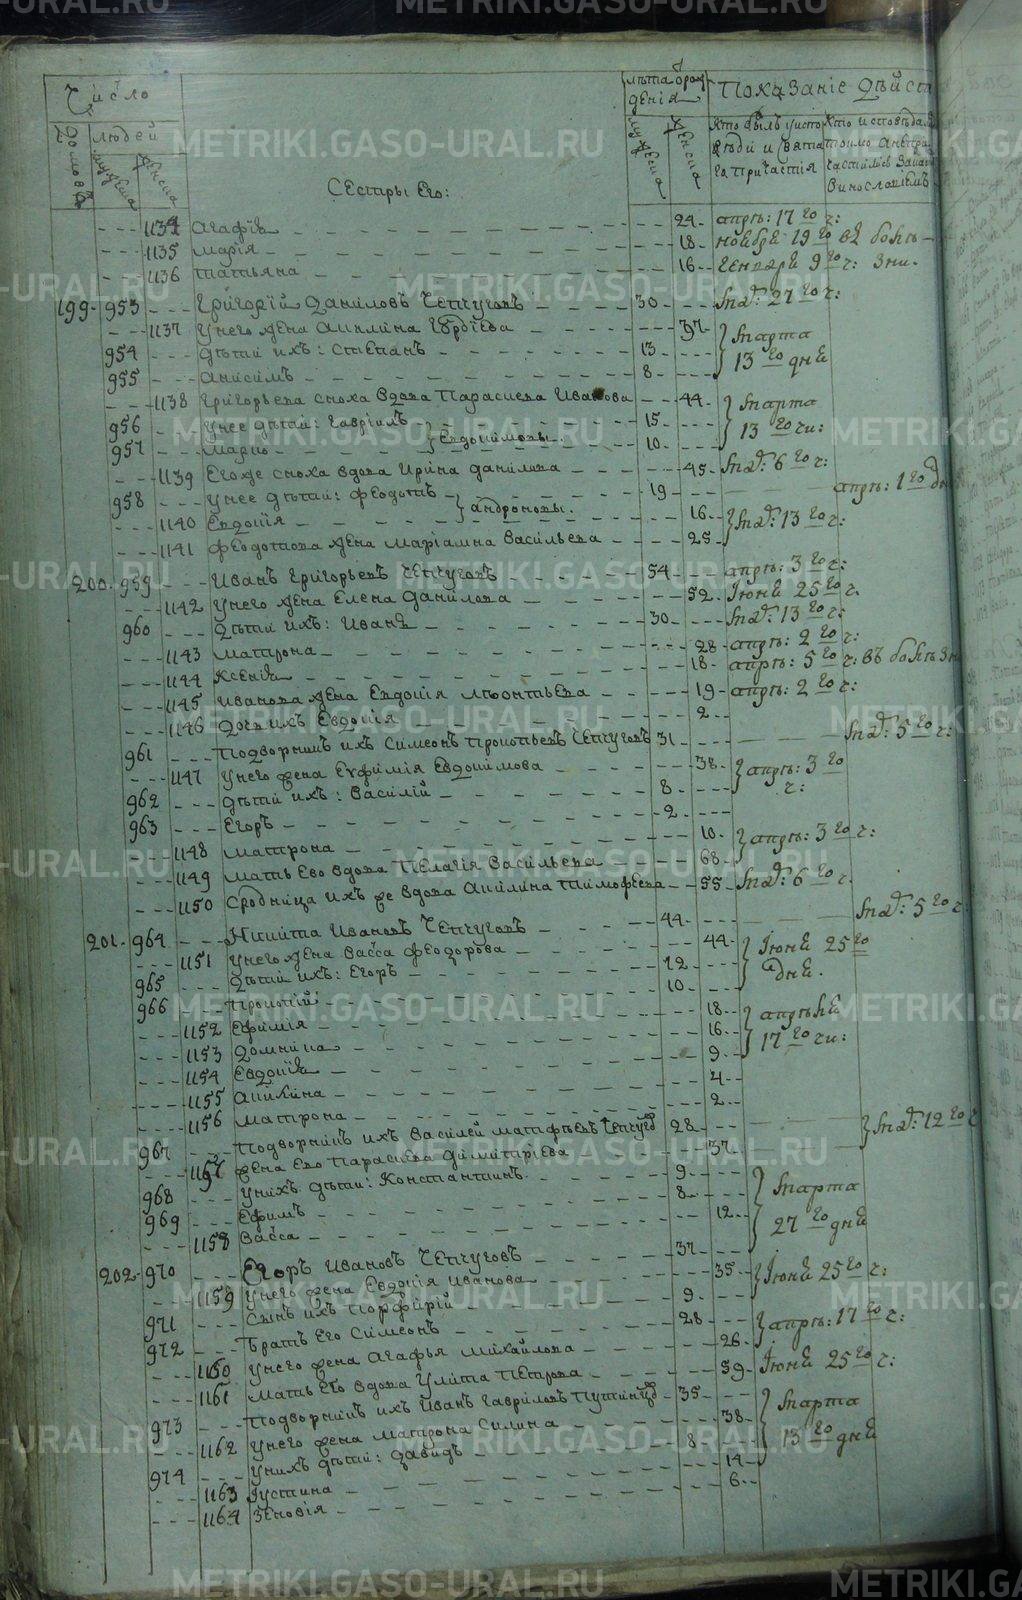 Число
людей
домовъ
мужеска
женска
лѣта отрождения
мужеска
женска
Показаніе дѣйств
кто былъ у исповѣди и святаго причастія
Сестры Его:
1134 Агафія 24 апрѣ: 17го ч:
1135 Марія 18 ноября 19го въ болѣ
1136 Татьяна 16 генваря 9го ч: зни.
199 953 Григорій Даниловъ Чепчуговъ 30 27го ч:
1137 У него жена Акилина Гордѣева 37 марта
954 дѣти ихъ: Степанъ 13 13го дня
955 Анисимъ 8
1138 Григорьева сноха вдова Параскева Иванова 44 марта
956 У нее дѣти: Гавріилъ 15 13го чи:
957 Марко Евдокимовы 10
1139 Его же сноха вдова Ирина Данилова 45 6го ч:
958 У нее дѣти: Феодотъ 19 апрѣ: 1го дн
1140 Евдокія Андроновы. 16 13го ч:
1141 Феодотова жена Маріамна Васильева 25
200 959 Иванъ Григорьевъ Чепчуговъ 54 апрѣ: 3го ч:
1142 У него жена Елена Данилова 52 Іюня 25го ч.
960 Дѣти ихъ: Иванъ 30 13го ч:
1143 Матрона 28 апрѣ: 2го ч:
1144 Ксенія 18 апрѣ: 5го ч: въ болѣзн
1145 Иванова жена Евдокія Леонтьева 19 апрѣ: 2го ч:
1146 Дочь ихъ Евдокія 2
961 Подворникъ ихъ Симеонъ Прокопьевъ Чепчуговъ 31 5го ч:
1147 У него жена Евфимія Евдокимова 38 апрѣ: 3го
962 дѣти ихъ: Василій 8 ч:
963 Егоръ 2
1148 Матрона 10 апрѣ: 3го ч:
1149 Мать Ево вдова Пелагія Васильева 68
1150 Сродница ихъ же вдова Акилина Тимофеева 55 6го ч.
201 964 Никита Ивановъ Чепчуговъ 44 5го ч:
1151 У него жена Васса Феодорова 44 Іюня 25го
965 Дѣти ихъ: Егоръ 12 дня.
966 Прокопій 10
1152 Ефимія 18 апрѣля
1153 Домника 16 17го чи:
1154 Евдокія 9
1155 Акилина 4
1156 Матрона 2
967 Подворникъ ихъ Василей Матфѣевъ Чепчугов 28 12го ч
1157 жена Ево Параскева Димитріева 37
968 У нихъ дѣти: Константинъ 9 марта
969 Ефимъ 8 27го дня
1158 Васса 12
202 970 Егоръ Ивановъ Чепчуговъ 37
1159 У него жена Евдокія Иванова 35 Іюня 25го ч:
971 Сынъ ихъ Порфирій 9
972 Братъ Его Симеонъ 28 апрѣ: 17го ч:
1160 У него жена Агафья Михайлова 26
1161 Мать Его вдова Улита Петрова 59 Іюня 25го ч:
973 Подворникъ ихъ Иванъ Гавриловъ 35 марта
1162 У него жена Матрона Силина 38 13го дня
974 У нихъ дѣти: Давидъ 8
1163 Іустина 14
1164 Зеновія 6
METRIKI.GASO-URAL.RU